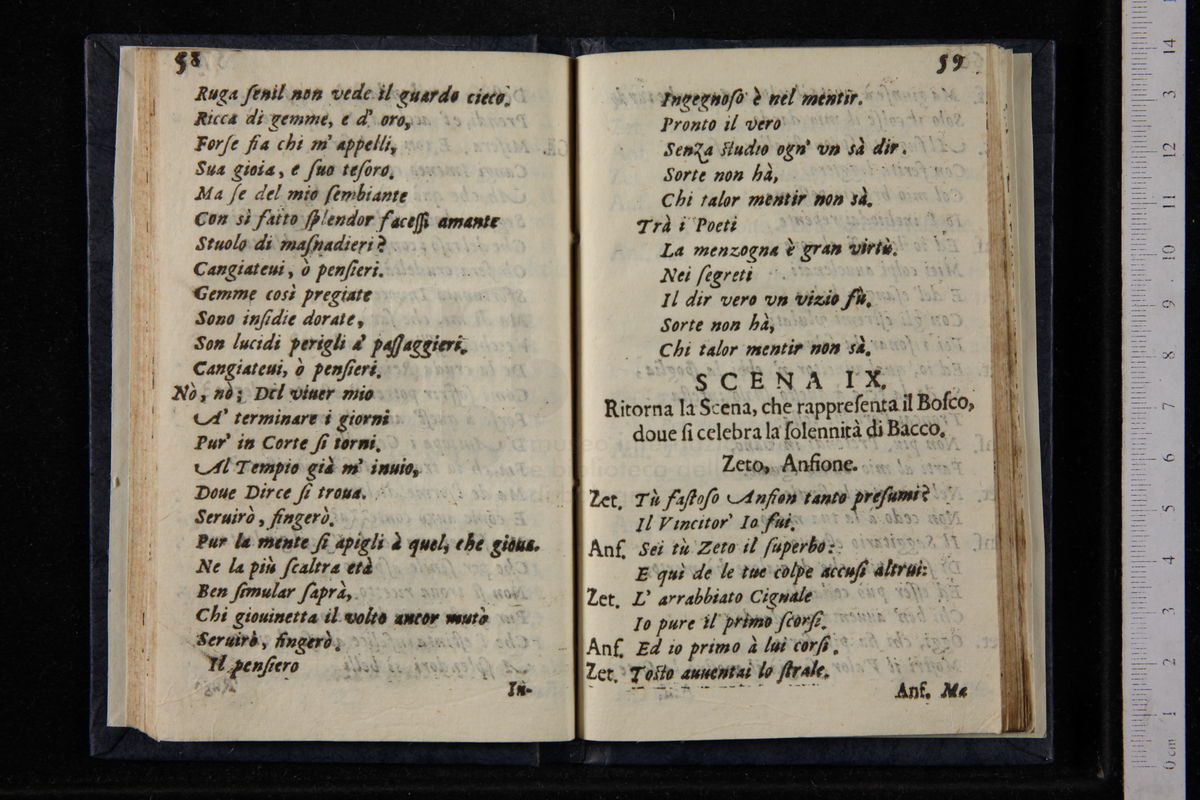 58
Ruga ſenil non vede il guardo cieco.
Ricca di gemme, e d' oro,
Forſe fia chi m' appelli,
Sua gioia, e ſuo teſoro.
Ma ſe del mio ſembiante
Con sì fatto ſplendor faceſſi amante
Stuolo di maſnadieri?
Cangiateui, ò penſieri.
Gemme così pregiate
Sono inſidie dorate,
Son lucidi perigli a' paſſaggieri.
Cangiateui, ò penſieri.
Nò, nò; Del viuer mio
A' terminare i giorni
Pur' in Corte ſi torni.
Al Tempio già m' inuio,
Doue Dirce ſi troua.
Seruirò, fingerò.
Pur la mente ſi apigli à quel, che gioua.
Ne la più ſcaltra età
Ben ſimular ſaprà,
Chi giouinetta il volto ancor mutò
Seruirò, fingerò.
Il penſiero
In-
59
Ingegnoſo è nel mentir.
Pronto il vero
Senza ſtudio ogn' vn sà dir.
Sorte non hà,
Chi talor mentir non sà.
Trà i Poeti
La menzogna è gran virtù.
Nei ſegreti
Il dir vero vn vizio fù.
Sorte non hà,
Chi talor mentir non sà.
SCENA IX.
Ritorna la Scena, che rappreſenta il Boſco,
doue ſi celebra la ſolennità di Bacco.
Zeto, Anfione.
Zet. Tù faſtoſo Anfion tanto preſumi?
Il Vincitor' Io fui.
Anf. Sei tù Zeto il ſuperbo:
E quì de le tue colpe accuſi altrui:
Zet. L' arrabbiato Cignale
Io pure il primo ſcorſi.
Anf. Ed io primo à lui corſi.
Zet. Toſto auuentai lo ſtrale.
Anf. Ma